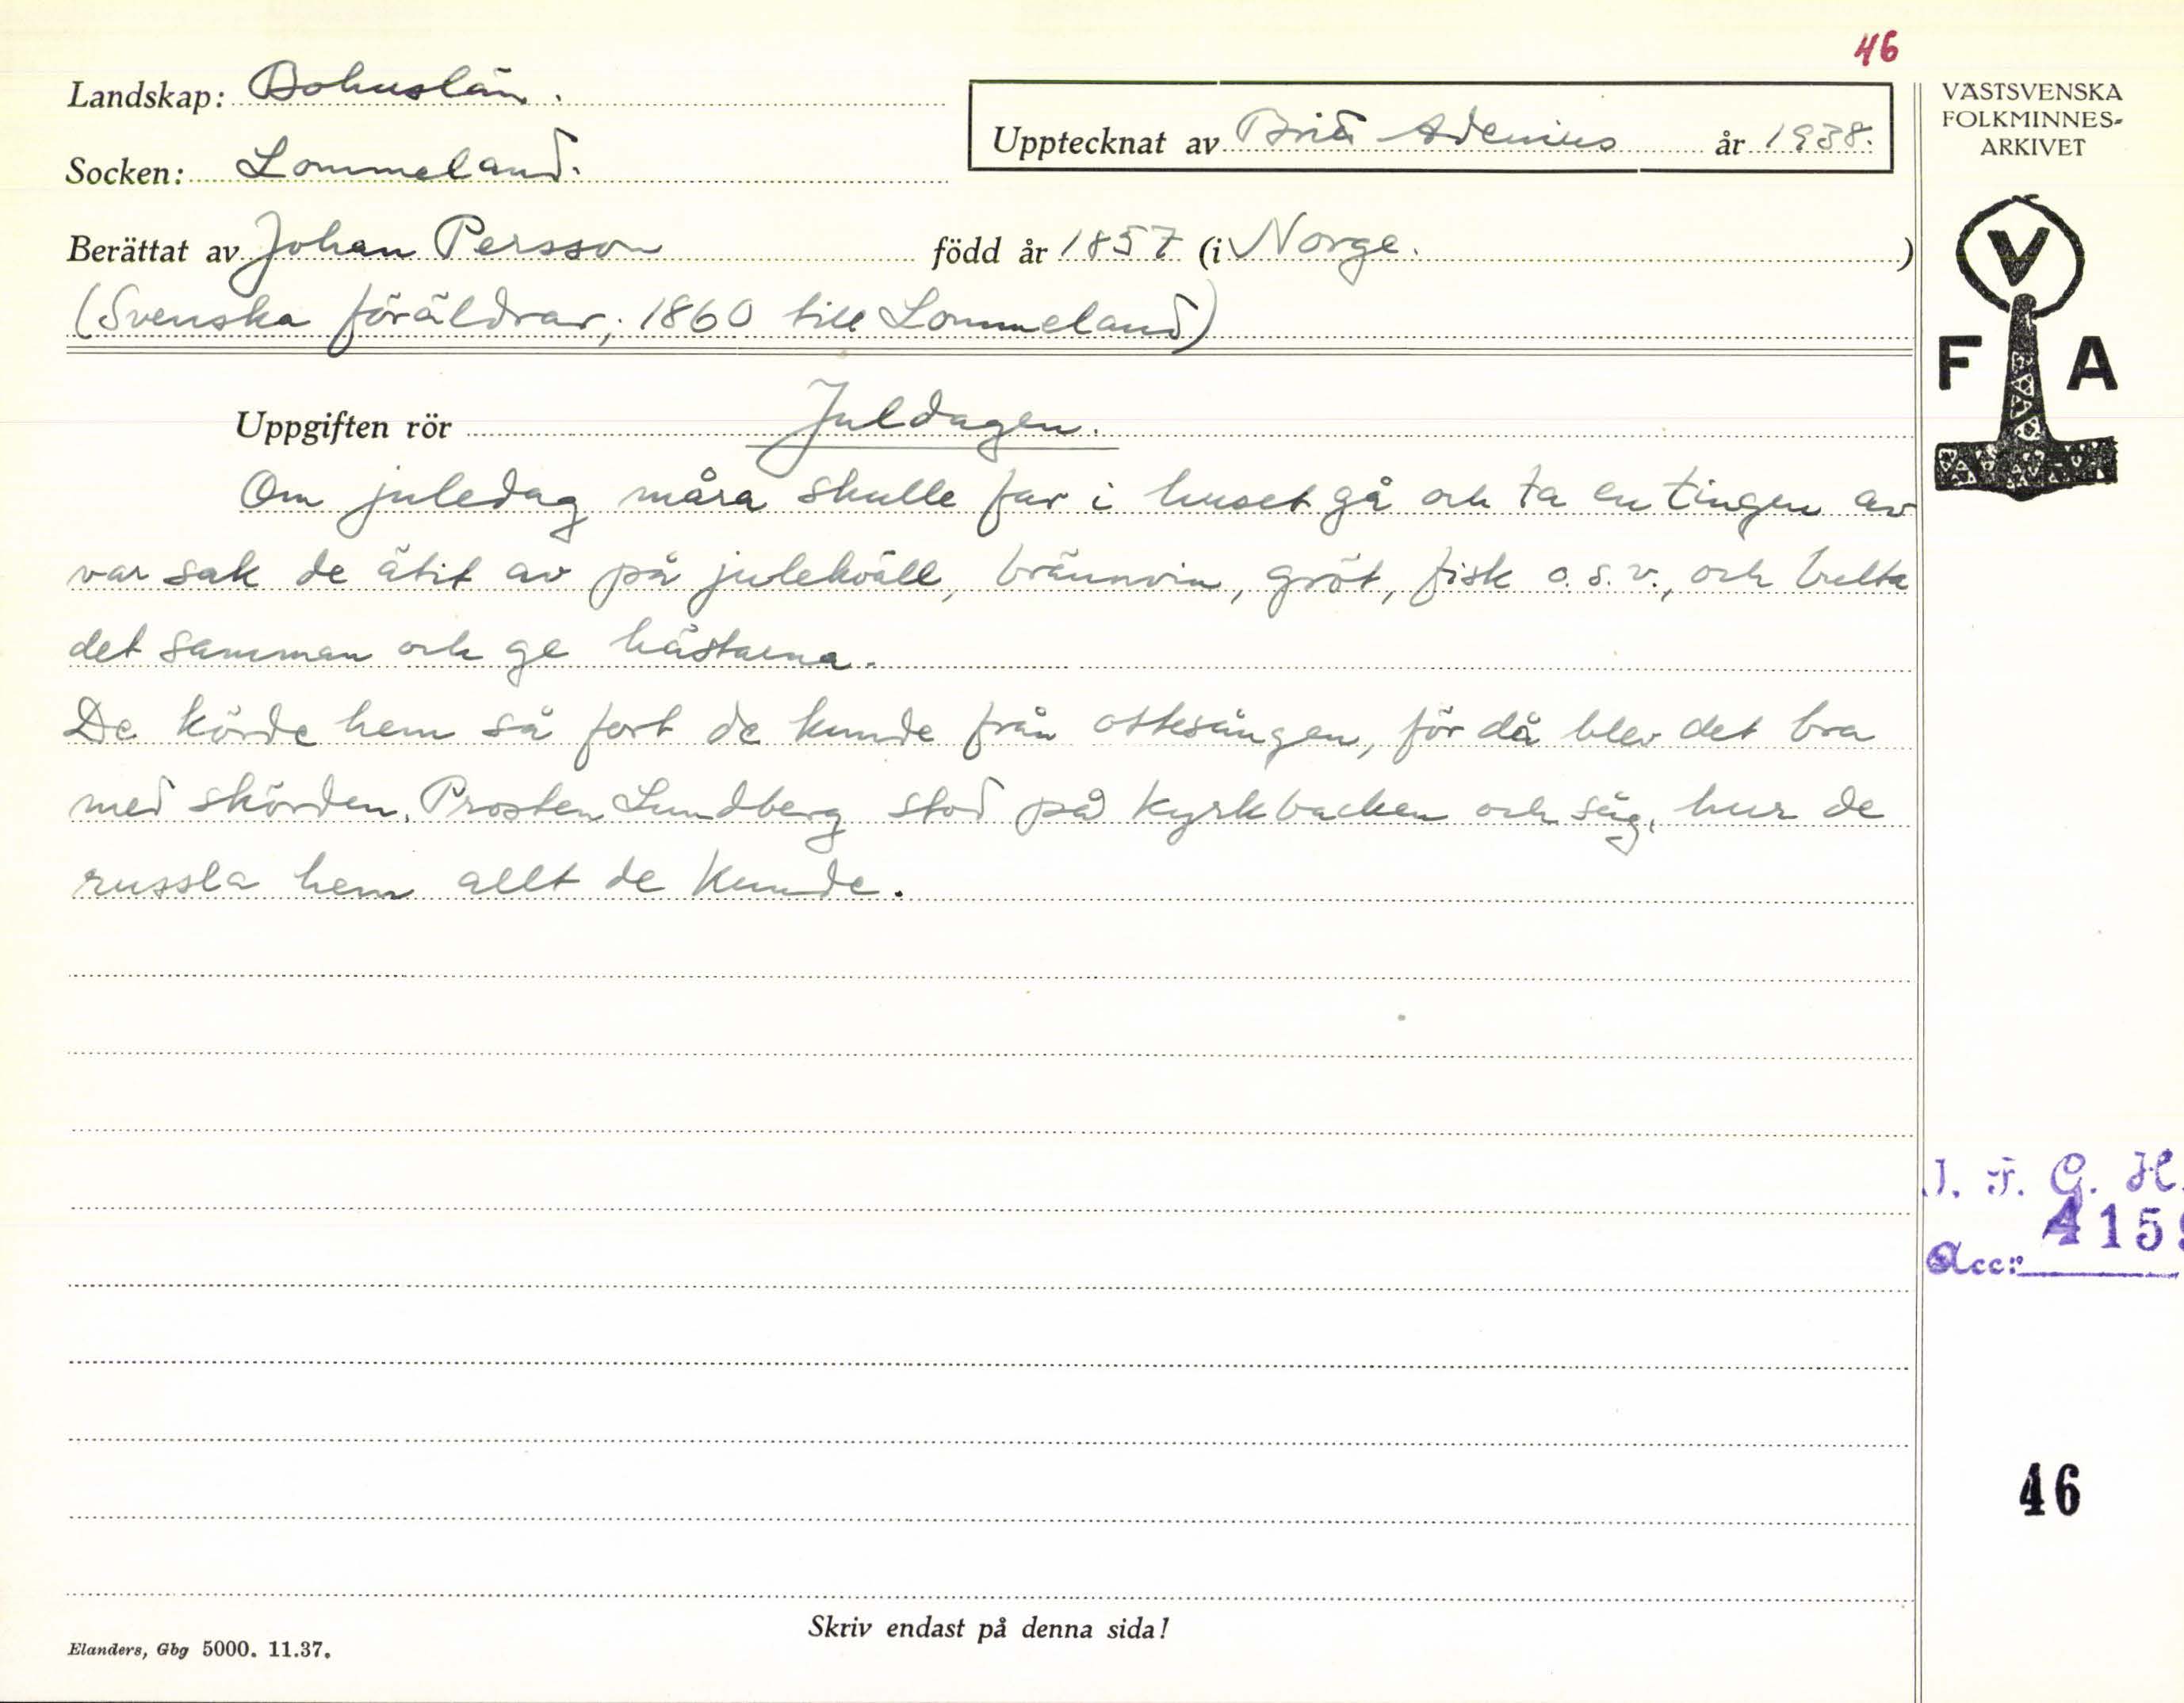 46
Landskap: Bohuslän.
Upptecknat av Brita Adenius år 1938.
Socken: Lommeland.
Berättat av Johan Persson född år 1857 (i Norge.)
(Svenska föräldrar, 1860 till Lommeland)
VÄSTSVENSKA
FOLKMINNES-
ARKIVET
V
F A
Uppgiften rör Juldagen.
Om juledag måra skulle far i huset gå och ta en tingen av
var sak de ätit av på julekväll, brännvin, gröt, fisk o.s.v., och bulta
det samman och ge hästarna.
De körde hem så fort de kunde från ottesången, för då blev det bra
med skörden. Prosten Lundberg stod på kyrkbacken och såg, hur de
russla hem allt de kunde.
I. F. G. H.
Acc: 415
46
Skriv endast på denna sida!
Elanders, Gbg 5000. 11.37.